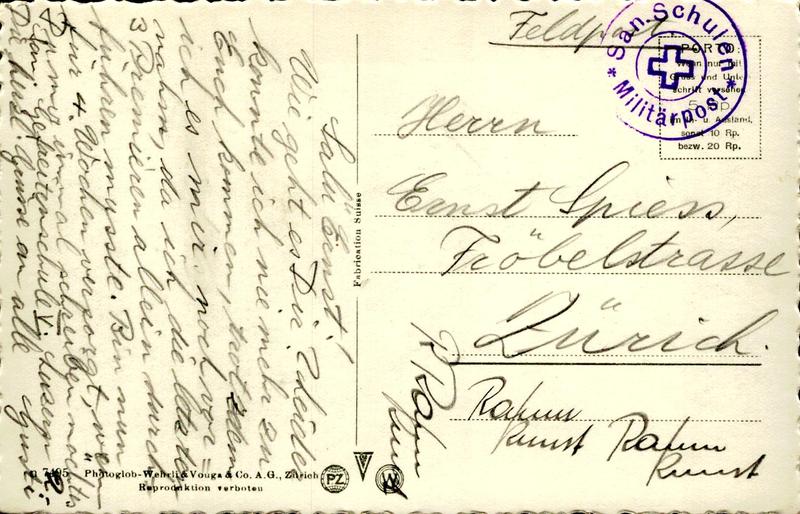 Feldpost
San. Schulen
* Militärpost *
PORTO:
Wenn nur mit
Gruss und Unter-
schrift versehen
5 Rp.
im In- u. Ausland,
sonst 10 Rp.
bezw. 20 Rp.
Herrn
Ernst Spiess,
Fröbelstrasse
Zürich.
Rahm
kunst
Rahm
kunst
Rahm
kunst
Salü Ernst!
Wie geht es Dir? Leider
konnte ich nie mehr zu
Euch kommen, trotzdem
ich es mir noch vor=
nahm, da ich die letzten
3 Brennieren allein durch
führen musste. Bin nun
für 4 Wochen versorgt, wenn
Du mir einmal schreiben
San. Gefreitenschule V. Luzern 2
Gruss an alle
Gusti
Fabrication Suisse
7495 Photoglob-Wehrli & Vouga & Co. A.G., Zürich
Reproduktion verboten
PZ
V
W